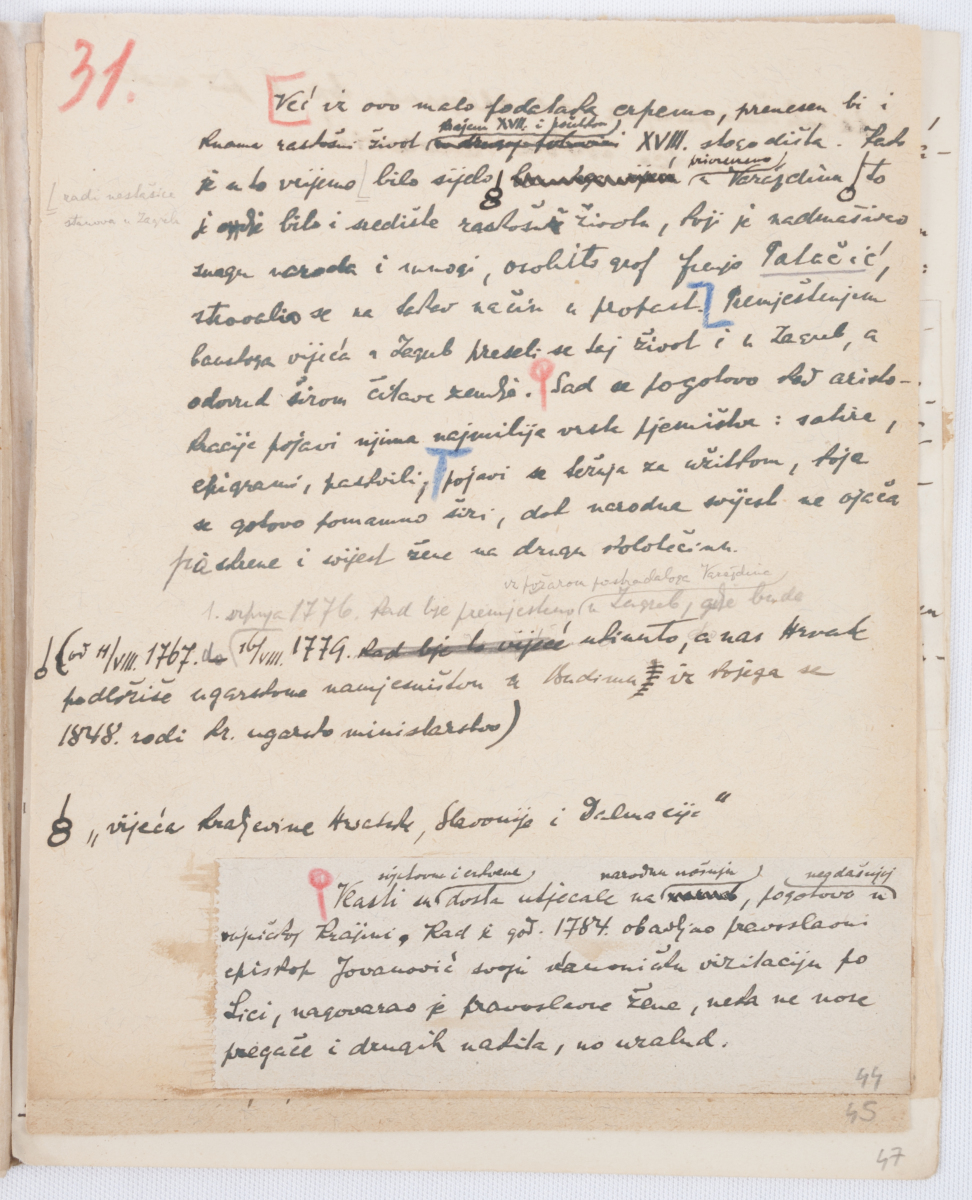 31.
Već iz ovo malo podataka crpemo, prenesen bi i
k nama raskošni život krajem XVII. i početkom XVIII. stogodišta. Kako
je u to vrijeme bilo sijelo privremeno u Varaždinu to
radi nestašice
stanova u Zagrebu
je ovdje bilo i središte raskošna života, koji je nadmašivao
snagu naroda i mnogi, osobito grof Franjo Patačić,
strovalio se na takav način u propast. Premještenjem
banskoga vijeća u Zagreb preseli se taj život i u Zagreb, a
odovud širom čitave zemlje. Sad se pogotovo kod aristo-
kracije pojavi njima najmilija vrsta pjesništva: satire,
epigrami, paskvili; pojavi se težnja za užitkom, koja
se gotovo pomamno širi, dok narodna svijest ne ojača
pa skrene i svijest žene na drugu kolotečinu.
iz požarom postradaloga Varaždina
1. srpnja 1776. kad bje premješteno u Zagreb, gdje bude
(od 11/VIII. 1767. do 16/VIII. 1779. kad bje to vijeće ukinuto, a nas Hrvate
podložiše ugarskome namjesništvu u Budimu iz kojega se
1848. rodi kr. ugarsko ministarstvo)
„vijeća kraljevine Hrvatske, Slavonije i Dalmacije“
svjetovne i crkvene narodnu nošnju negdašnjoj
Vlasti su dosta utjecale na, pogotovo u
vojničkoj Krajini. Kad je god. 1784. obavljao pravoslavni
episkop Jovanović svoju kanoničku vizitaciju po
Lici, nagovarao je pravoslavne žene, neka ne nose
pregače i drugih nakita, no uzalud.
44
45
47